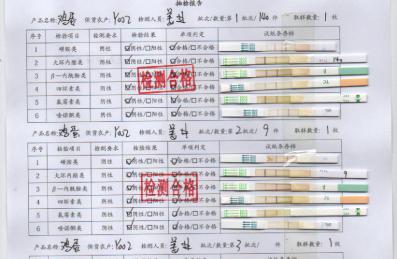 抽检报告
产品名称:鸡蛋 供货农户:Y002 检测人员: 批次/数量:第1批次/140件 取样数量:1枚
序号 检验项目 检测要求 检验结果 单项判定 试纸条存样
1 磺胺类 阴性 ☑阴性/□阳性 ☑合格/□不合格
2 大环内酯类 阴性 ☑阴性/□阳性 ☑合格/□不合格
3 β—内酰胺类 阴性 ☑阴性/□阳性 ☑合格/□不合格
4 四环素类 阴性 ☑阴性/□阳性 ☑合格/□不合格
5 氟苯尼 阴性 ☑阴性/□阳性 ☑合格/□不合格
6 喹诺酮类 阴性 ☑阴性/□阳性 ☑合格/□不合格
检测合格
产品名称:鸡蛋 供货农户:Y002 检测人员: 批次/数量:第2批次/9件 取样数量:1枚
序号 检验项目 检测要求 检验结果 单项判定 试纸条存样
1 磺胺类 阴性 ☑阴性/□阳性 ☑合格/□不合格
2 大环内酯类 阴性 ☑阴性/□阳性 ☑合格/□不合格
3 β—内酰胺类 阴性 ☑阴性/□阳性 ☑合格/□不合格
4 四环素类 阴性 ☑阴性/□阳性 ☑合格/□不合格
5 阴性 ☑阴性/□阳性 ☑合格/□不合格
6 喹诺酮类 阴性 ☑阴性/□阳性 ☑合格/□不合格
检测合格
产品名称:鸡蛋 供货农户:Y002 检测人员: 批次/数量:第3批次/ 件 取样数量:1枚